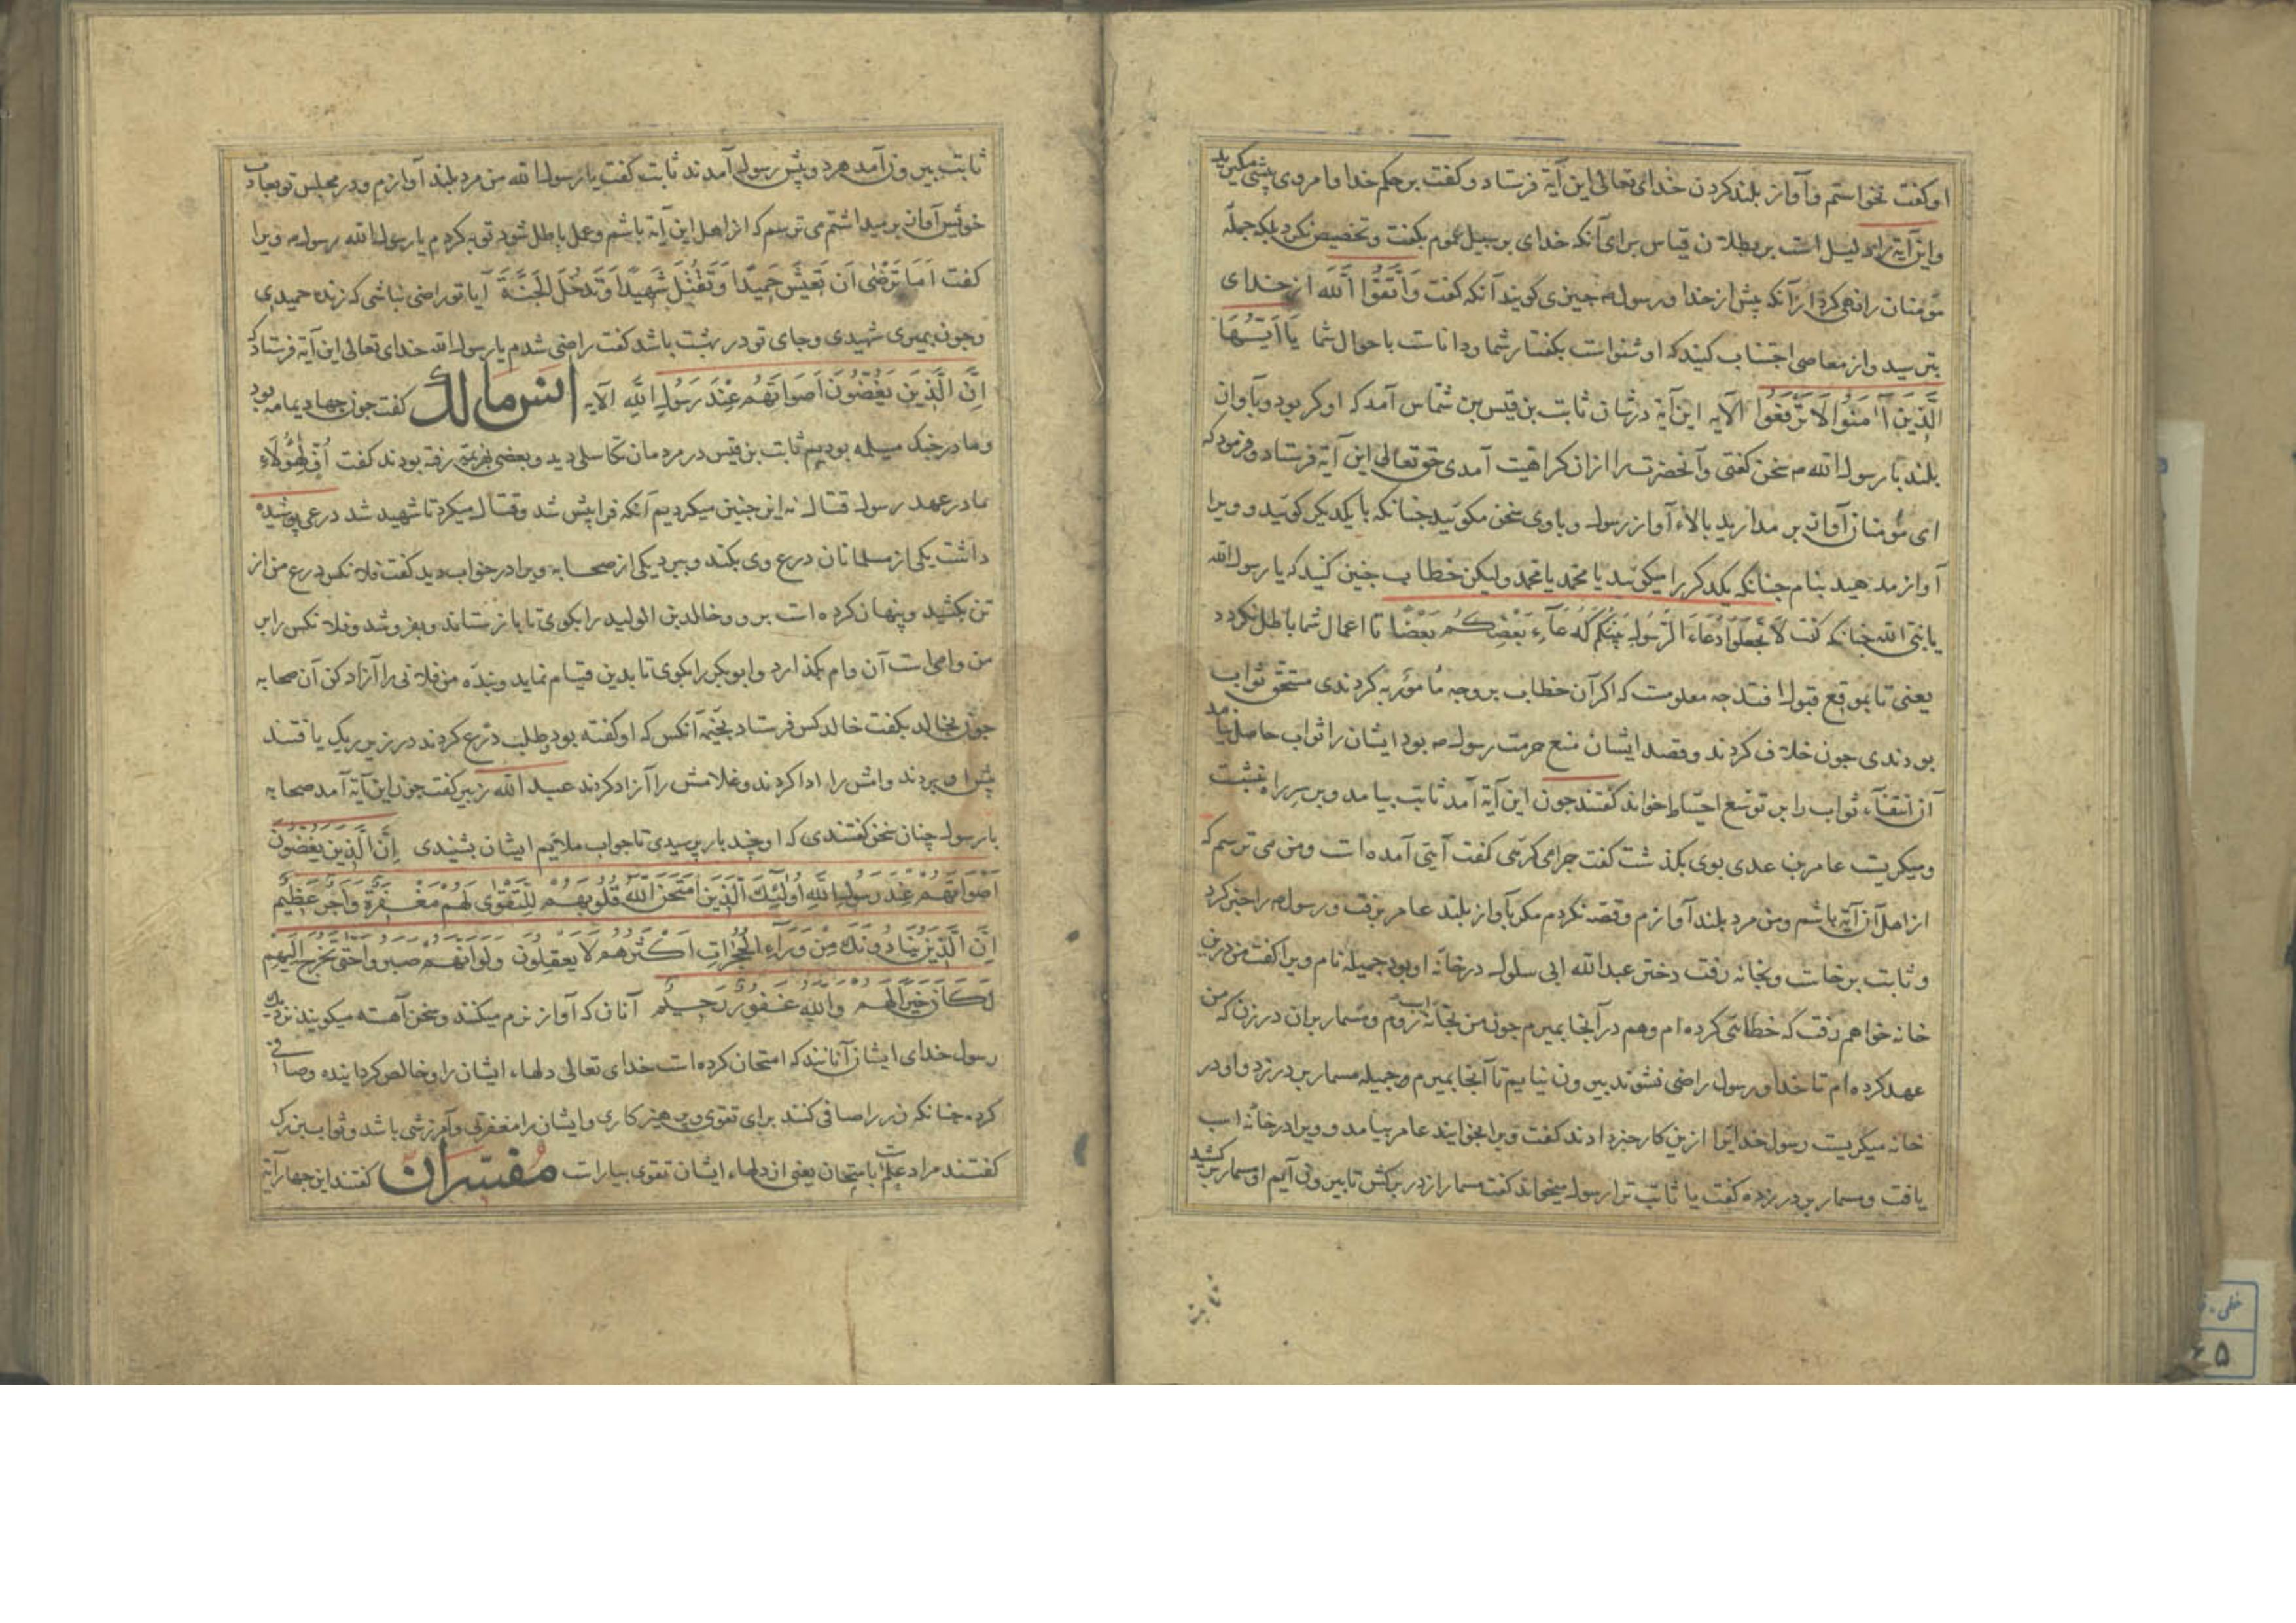 او کفت نخواستم و آواز بلند کردن خدای تعالی این آیة فرستاد و کفت بر حکم خدا و امر وی پیشی مکیرید
و این آیة را دلیل است بر بطلان قیاس برای آنکه خدای بر سبیل عموم بکفت و تخصیص نکرد بلکه جملۀ
مؤمنان را نهی کرد از آنکه پیش از خدا و رسول م چیزی کویند آنکه کفت وَاتَّقُوا اللَّهَ از خدای
بترسید و از معاصی اجتناب کنید که او شنواست بکفتار شما و داناست باحوال شما یَا اَیُّهَا
الَّذِینَ آمَنُوا لَا تَرْفَعُوا الآیه این آیة در شان ثابت بن قیس بن شماس آمد که او کر بود و بآوان
بلند با رسول الله م سخن کفتی و آنحضرت را ازان کراهیت آمدی حق تعالی این آیة فرستاد و فرمود که
ای مؤمنان آواز بر مدارید بالاء آواز رسول و با وی سخن مکوئید چنانکه با یکدیکر کوئید و ویرا
آواز مدهید بنام چنانکه یکدکر را میکوئید یا محمد یا محمد ولیکن خطاب چنین کنید که یا رسول الله
یا نبی الله چنانکه کفت لَا تَجْعَلُوا دُعَاءَ الرَّسُولِ بَیْنَکُمْ کَدُعَآءِ بَعْضِکُم بَعْضًا تا اعمال شما باطل نکردد
یعنی تا بموقع قبول افتد چه معلومست که اکر آن خطاب بر وجه مأمور به کردندی مستحق ثواب
بودندی چون خلاف کردند و قصد ایشان منع حرمت رسول م بود ایشان را ثواب حاصل نیامد
آن انتفآء ثواب را بر توسع احباط خواند کفتند چون این آیة آمد ثابت بیامد و بر سر راه بنشست
و میکریست عامر بن عدی بوی بکذشت کفت چرا می کریی کفت آیتی آمده است و من می ترسم که
از اهل آن آیة باشم و من مرد بلند آوازم و قصد نکردم مکر بآواز بلند عامر برفت و رسول م را خبر کرد
و ثابت برخاست و بخانه رفت دختر عبدالله ابی سلول در خانۀ او بود جمیله نام ویرا کفت من درین
خانه خواهم رفت که خطائی کرده ام و هم در آنجا بمیرم چون من بخانۀ روم و مسمار بران در زن که من
عهد کرده ام تا خدا و رسول راضی نشوند بیرون نیایم تا آنجا بمیرم و جمیله مسمار بر در زد و او در
خانه میکریست رسول خدا را ازین کار خبر دادند کفت ویرا بخوانید عامر بیامد و ویرا در خانۀ اسب
یافت و مسمار بر در زده کفت یا ثابت ترا رسول میخواند کفت مسمار از در برکش تا بیرون آیم او مسمار برکشید
ثابت
ثابت بیرون آمد هر دو پیش رسول آمدند ثابت کفت یا رسول الله من مرد بلند آوازم و در مجلس تو بعادت
خویش آواز بر میداشتم می ترسم که از اهل این آیة باشم و عمل باطل شود توبه کردم یا رسول الله رسول م ویرا
کفت اَمَا تَرْضٰی اَن تَعِیشَ حَمِیدًا وَ تَقْتُلَ شَهِیدًا وَ تَدْخُلَ الجَنَّةَ آیا تو راضی نباشی که زنده حمیدی
و چون بمیری شهیدی و جای تو در بهشت باشد کفت راضی شدم یا رسول الله خدای تعالی این آیة فرستاد که
اِنَّ الَّذِینَ یَغُضُّونَ اَصْوَاتَهُمْ عِنْدَ رَسُولِ اللَّهِ الآیه انس مالک کفت چون جهاد یمامه بود
و ما در جنک مسیلمه بودیم ثابت بن قیس در مردمان تکاسلی دید و بعضی بهزیمت رفته بودند کفت اُفٍّ لِهٰؤُلَاءِ
ما در عهد رسول قتال نه این چنین میکردیم آنکه فرا پیش شد و قتال میکرد تا شهید شد درعی پوشیده
داشت یکی از مسلمانان درع وی بکند و ببرد یکی از صحابه ویرا در خواب دید کفت فلانکس درع من از
تن بکشید و پنهان کرده است برو و خالد بن الولید را بکوی تا باز ستاند و بفروشد و فلانکس را بر
من وامی است آن وام بکذارد و ابوبکر را بکوی تا بدین قیام نماید و بندۀ من فلانی را آزاد کن آن صحابه
چون بخالد بکفت خالد کس فرستاد بخیمۀ آنکس که او کفته بود و طلب درع کردند در زیر ریک یافتند
پیش او بردند وامش را ادا کردند و غلامش را آزاد کردند عبدالله زبیر کفت چون این آیة آمد صحابه
با رسول چنان سخن کفتندی که او چند بار پرسیدی تا جواب ملائیم ایشان بشنیدی اِنَّ الَّذِینَ یَغُضُّونَ
اَصْوَاتَهُمْ عِنْدَ رَسُولِ اللَّهِ اُولٰئِكَ الَّذِینَ امْتَحَنَ اللَّهُ قُلُوبَهُمْ لِلتَّقْوٰی لَهُمْ مَغْفِرَةٌ وَاَجْرٌ عَظِیمٌ
اِنَّ الَّذِینَ یُنَادُونَكَ مِنْ وَرَآءِ الْحُجُرَاتِ اَکْثَرُهُمْ لَا یَعْقِلُونَ وَلَوْ اَنَّهُمْ صَبَرُوا حَتّٰی تَخْرُجَ اِلَیْهِمْ
لَکَانَ خَیْرًا لَهُمْ وَاللَّهُ غَفُورٌ رَحِیمٌ آنان که آواز نرم میکنند و سخن آهسته میکویند نزدیک
رسول خدای ایشان آنانند که امتحان کرده است خدای تعالی دلهاء ایشان را و خالص کردانیده و صافی
کرده چنانکه زر را صافی کنند برای تقوی و پرهیزکاری و ایشان را مغفرتی و آمرزشی باشد و ثواب بزرک
کفتند مراد علم است بامتحان یعنی از دلهاء ایشان تقوی بسیار است مفسران کفتند این چهار آیة
۵